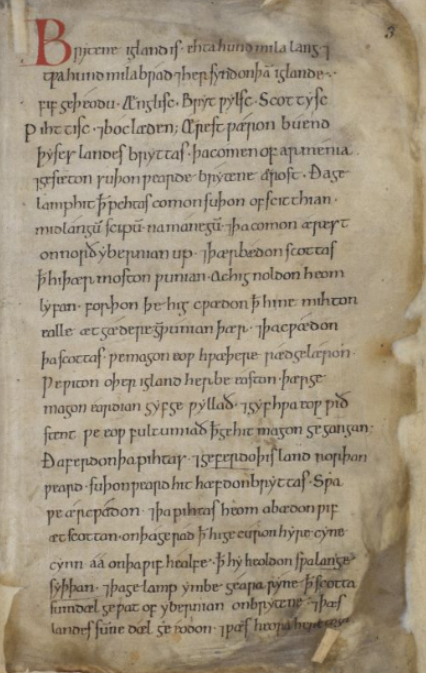 3
Brytene igland is ehta hund mila lang ⁊
tƿa hund mila brad ⁊ her syndon þā iglande
fif geþeodu. Ænglisc. Brytƿylsc. Scottysc
Pihttisc. ⁊ boc læden; Ærest ƿæron buend
þyses landes bryttas. þa comon of armenia.
⁊ gesæton suþonƿearde brytene ærost. Ða ge
lamp hit ꝥ pehtas comon suþon of scitthian.
mid langū scipū na manegū. ⁊ þa comon ærest
on norð ybernian up. ⁊ þær bedon scottas
ꝥ hi þær moston ƿunian. Ac hig noldon heom
lyfan. forþon þe hig cƿædon ꝥ hi ne mihton
ealle ætgædere ƿunian þær. ⁊ þa cƿædon
þa scottas. ƿe magon eoƿ hƿæþere ræd gelæron.
Ƿe ƿiton oþer igland her be easton. þær ge
magon eardian gyf ge ƿyllað. ⁊ gyf hƿa eoƿ ƿið
stent. ƿe eoƿ fultumiað ꝥ ge hit magon gegangan.
Ða ferdon þa pihtas. ⁊ geferdon þis land norþan
ƿeard. suþonƿeard hit hæfdon bryttas. Sƿa
ƿe ær cƿædon. ⁊ þa pihtas heom abædon ƿif
æt scotton. on þa gerad ꝥ hi gecuron hyre cyne
cynn aa on þa ƿif healfe. ꝥ hy heoldon sƿa lange
syþþan. ⁊ þa gelamp ymbe geara ryne ꝥ scotta
sum dæl geƿat of ybernian on brytene. ⁊ þæs
landes sūne dæl geeodon. ⁊ ƿæs heora